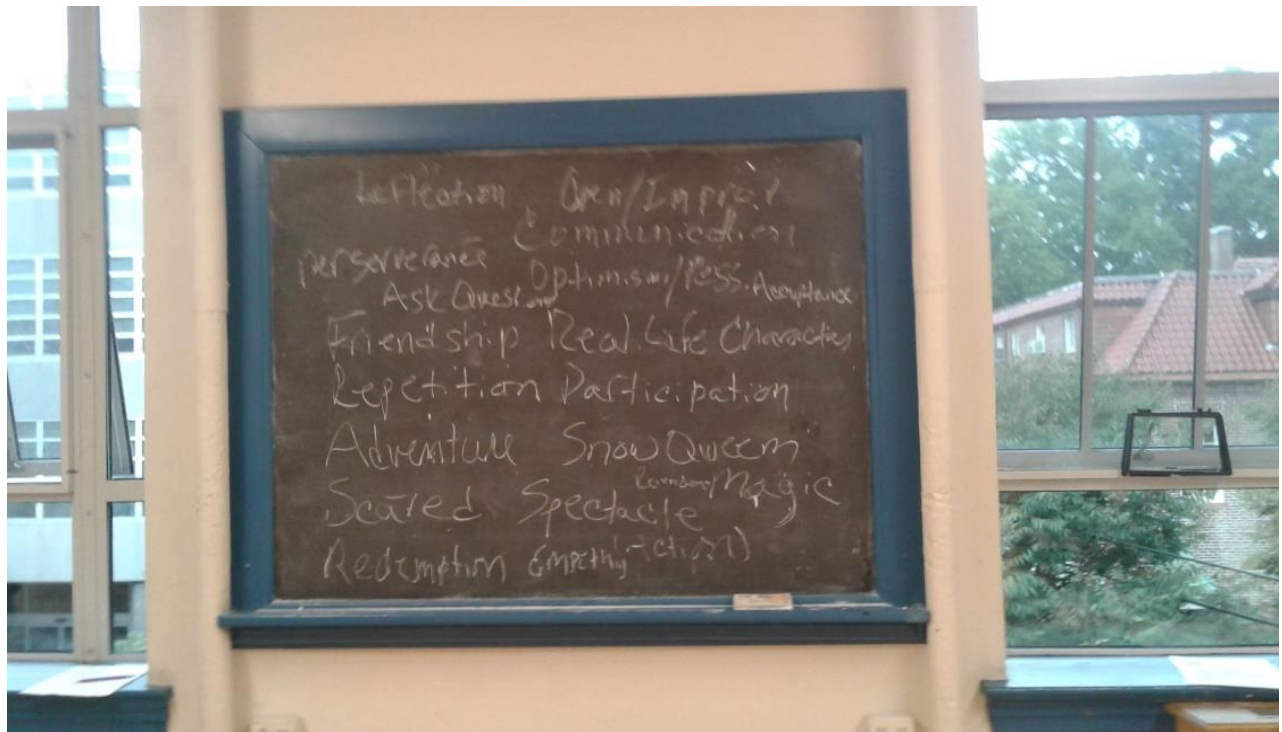 Open/Improv
Communication
perserverance Optimism/Pess. Acceptance
Ask Quest.
Friendship Real Life Characters
Repetition Participation
Adventure Snow Queen
Magic
Scared Spectacle
Redemption Empathy (ction)